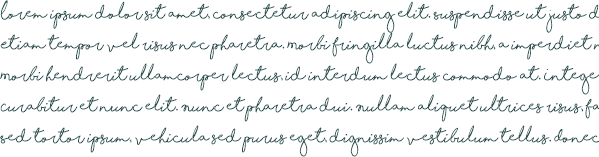 lorem ipsum dolor sit amet, consectetur adipiscing elit. suspendisse ut justo d
etiam tempor vel risus nec pharetra. morbi fringilla luctus nibh, a imperdiet n
morbi hendrerit ullamcorper lectus, id interdum lectus commodo at. intege
curabitur et nunc elit. nunc et pharetra dui. nullam aliquet ultrices risus, fa
sed tortor ipsum, vehicula sed purus eget, dignissim vestibulum tellus. donec